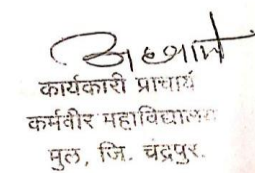 कार्यकारी प्राचार्य
कर्मवीर महाविद्यालय
मुल, जि. चंद्रपुर.